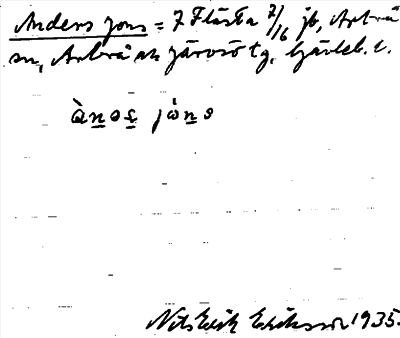 Anders Jons = 7 Flästa 7/16 jb, Arbrå
sn, Arbrå ak Järvsö tg, Gävleb. l.
ànəs jòns
Nils Erik Eriksson 1935.